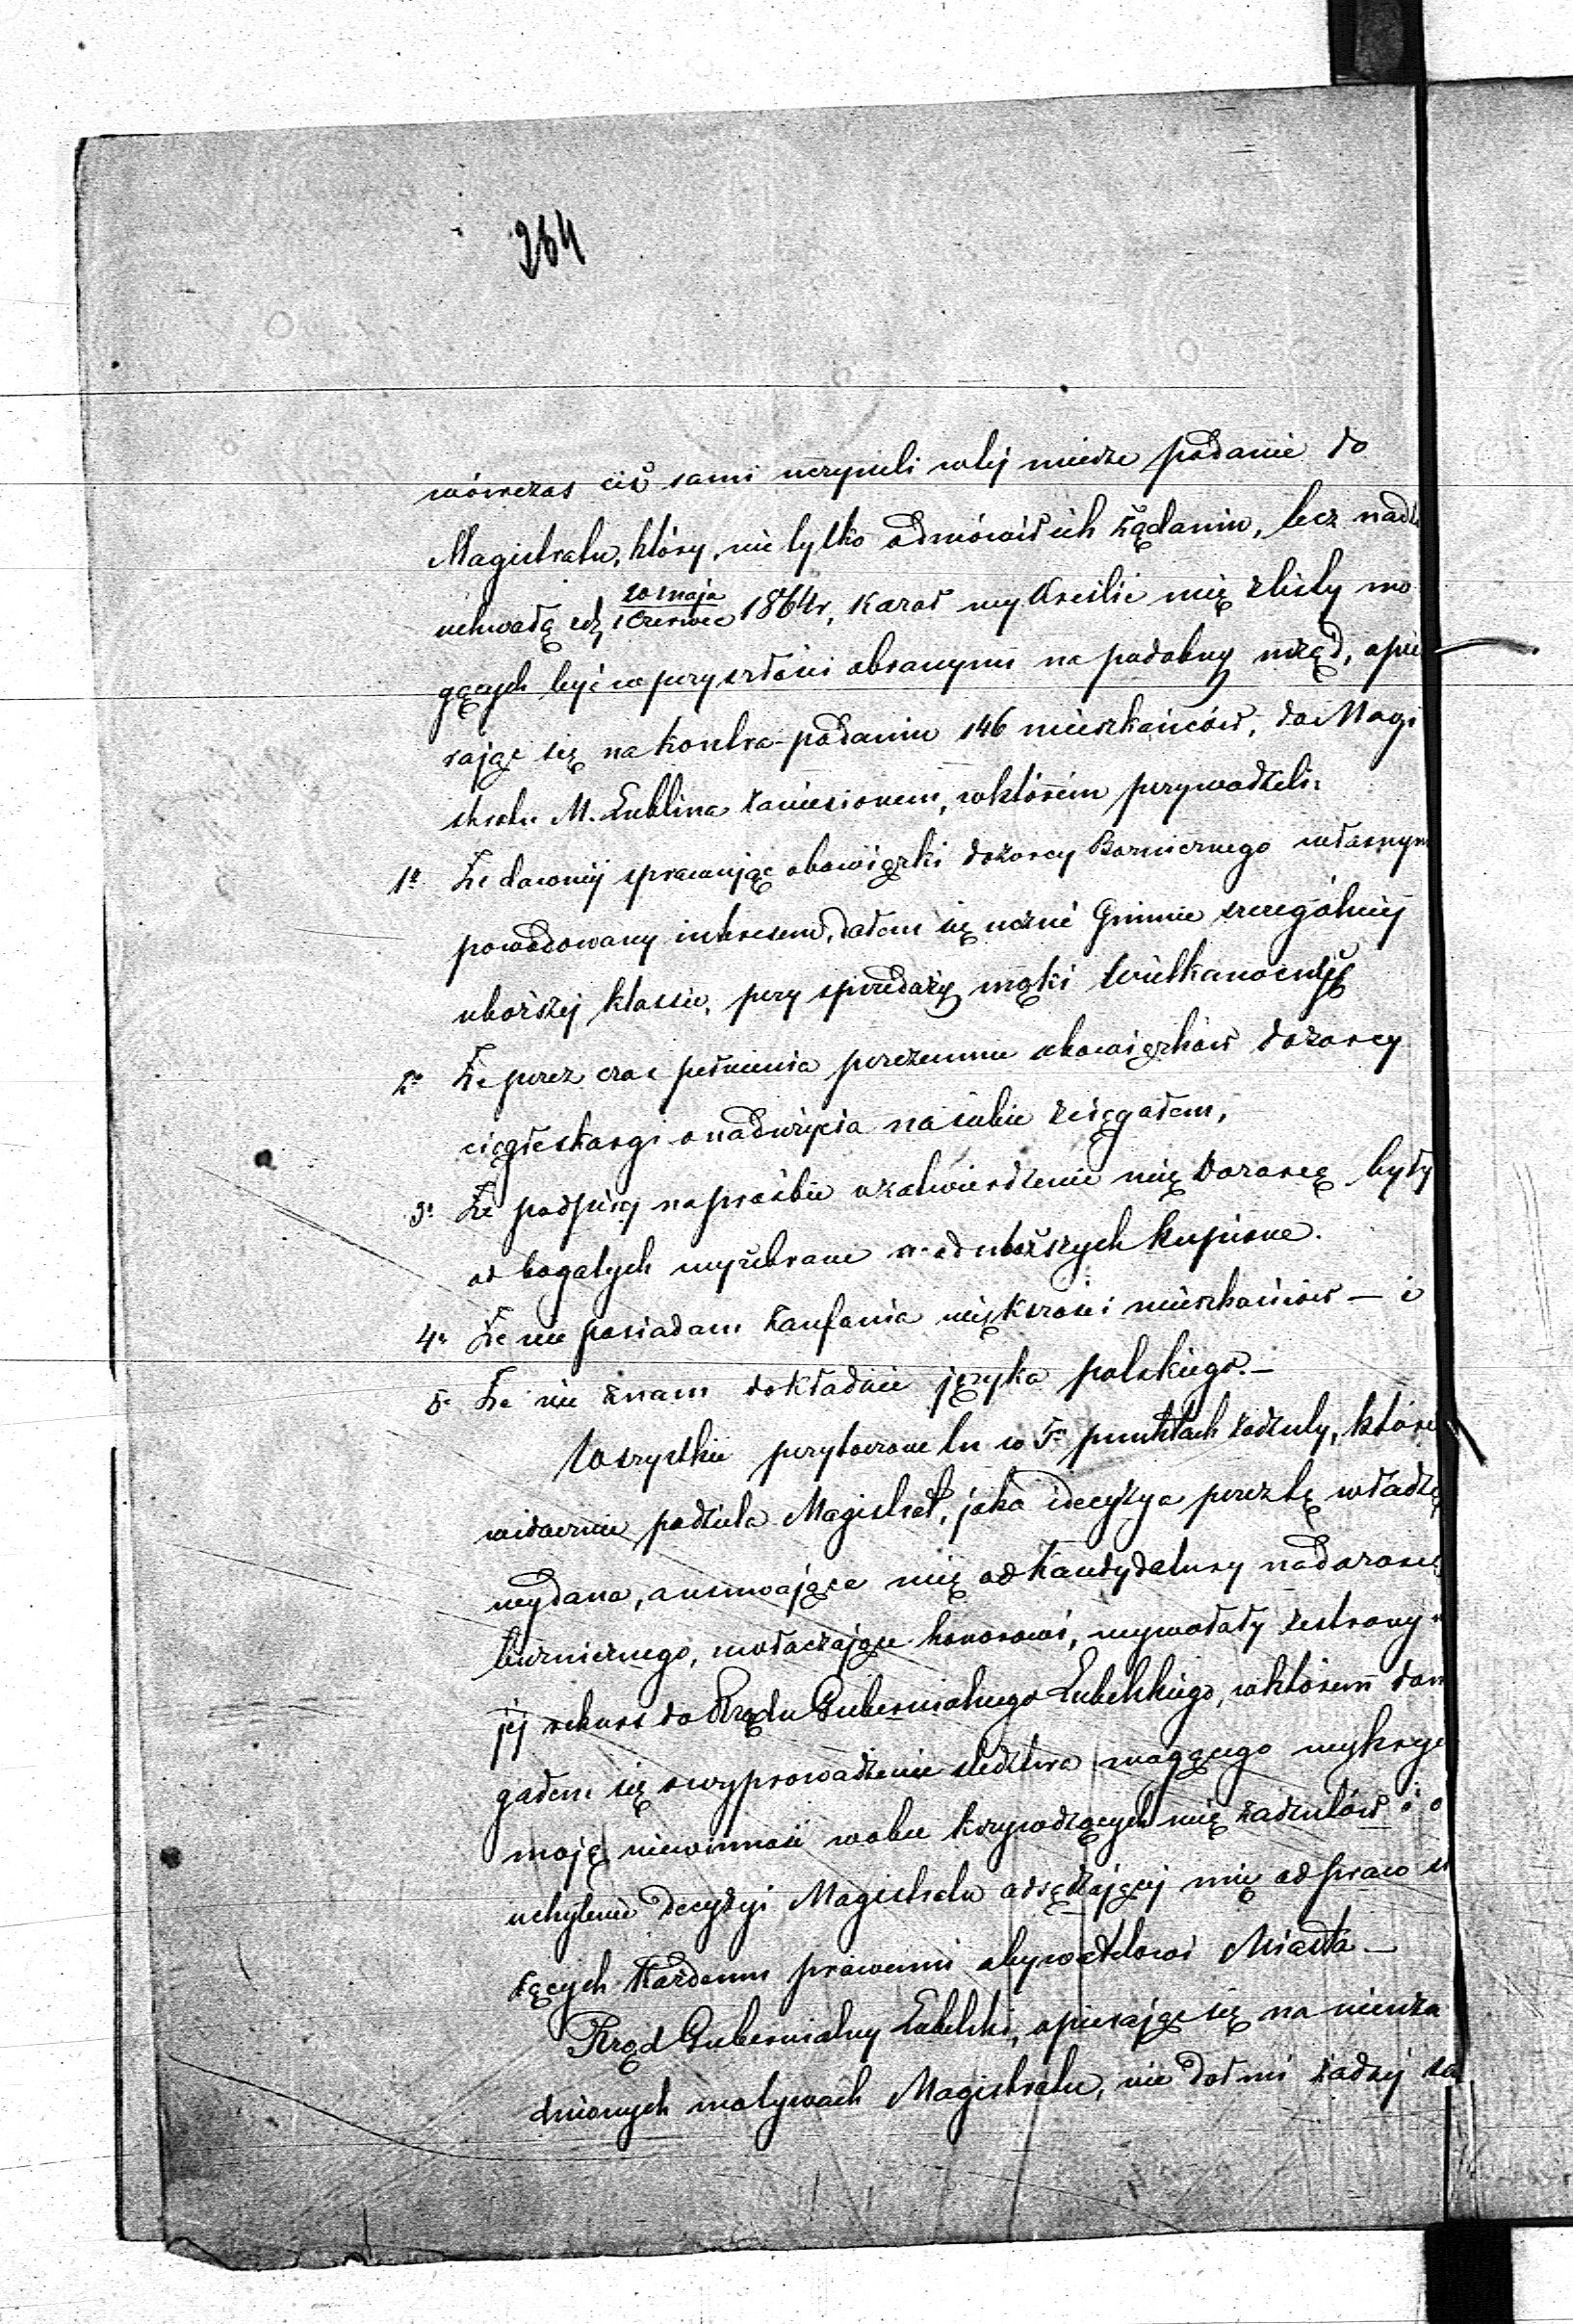 264
wówczas ciż sami uczynili w tej mierze podanie do
Magistratu, który, nie tylko odmówił ich żądaniu, lecz nadto
uchwałą z dz 20 maja / 1 Czerwca 1864 r, kazał wykreślić mię z listy mo
gących być w przyszłości obranymi na podobny urząd, opie
rając się na kontra-podaniu 146 mieszkańców, do Magi
stratu M. Lublina zaniesionem, w którém przywodzili:
1º Że dawniej sprawując obowiązki dozorcy Bożniczego własnym
powodowany interesem, dałem się uczuć Gminie szczególniej
uboższej klassie, przy sprzedaży mąki Wielkanocnéj
2º Że przez czas pełnienia przezemnie obowiązków dozorcy
ciągłe skargi o nadużycia na siebie ściągałem,
3º Że podpisy na prośbie o zatwierdzenie mię Dozorcą były
od bogatych wyżebrane a od uboższych kupione.
4º Że nie posiadam zaufania większości mieszkańców — i
5º Że nie znam dokładnie języka polskiego. —
Wszystkie przytoczone tu w 5ciu punktach zarzuty, które
widocznie podziela Magistrat, jako i decyzya przez tę władzę
wydana, a usuwająca mię od kandydatury na dozorcę
bużniczego, uwłaczające honorowi, wywołały ze strony
jej rekurs do Rządu Gubernialnego Lubelskiego, w którem dom
gałem się o wyprowadzenie śledztwa mającego wykryć
moję niewinność wobec krzywdzących mię zarzutów i o
uchylenie decyzyi Magistratu odsądzającej mię od praw sł
żących każdemu prawemu obywatelowi Miasta —
Rząd Gubernialny Lubelski, opierając się na nieuza
dnionych motywach Magistratu, nie dał mi żadnej